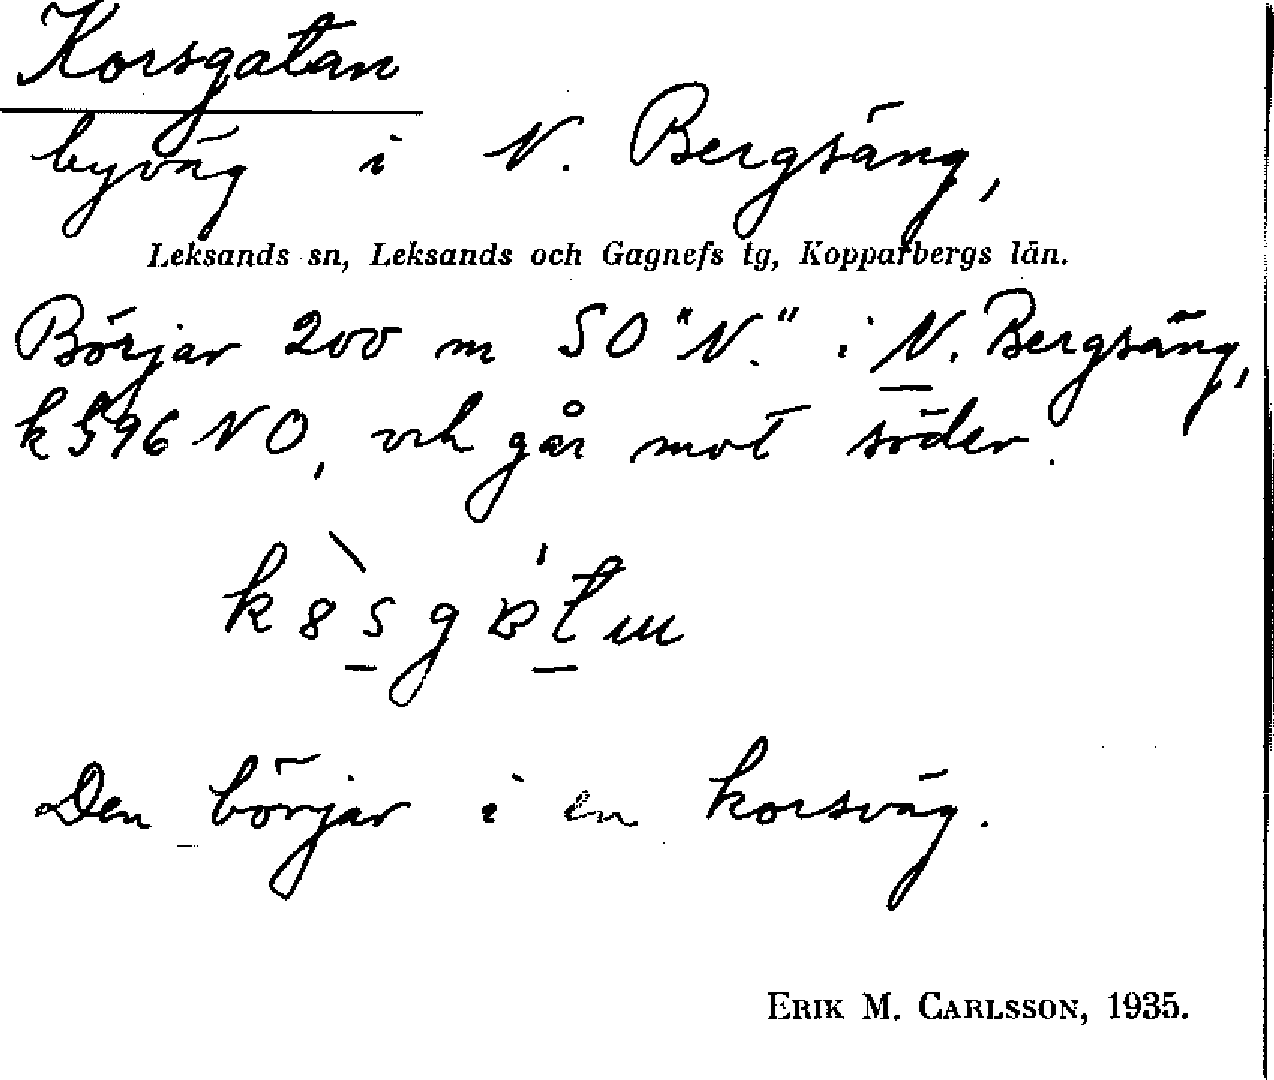 Korsgatan
byväg i N. Bergsäng,
Leksands sn, Leksands och Gagnefs tg, Kopparbergs län.
Börjar 200 m SO "N." i N. Bergsäng,
k 596 NO, och går mot söder.
Den börjar i en korsväg.
ERIK M. CARLSSON, 1935.